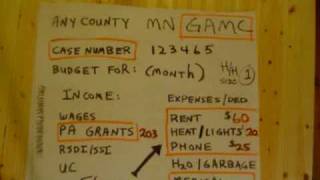 ANY COUNTY MN GAMC
CASE NUMBER 123465
BUDGET FOR: (MONTH) H/H SIZE 1
INCOME: EXPENSES/DED
WAGES RENT $60
PA GRANTS 203 HEAT/LIGHTS 20
RSDI/SSI PHONE $25
UC H2O/GARBAGE
MEDICAL